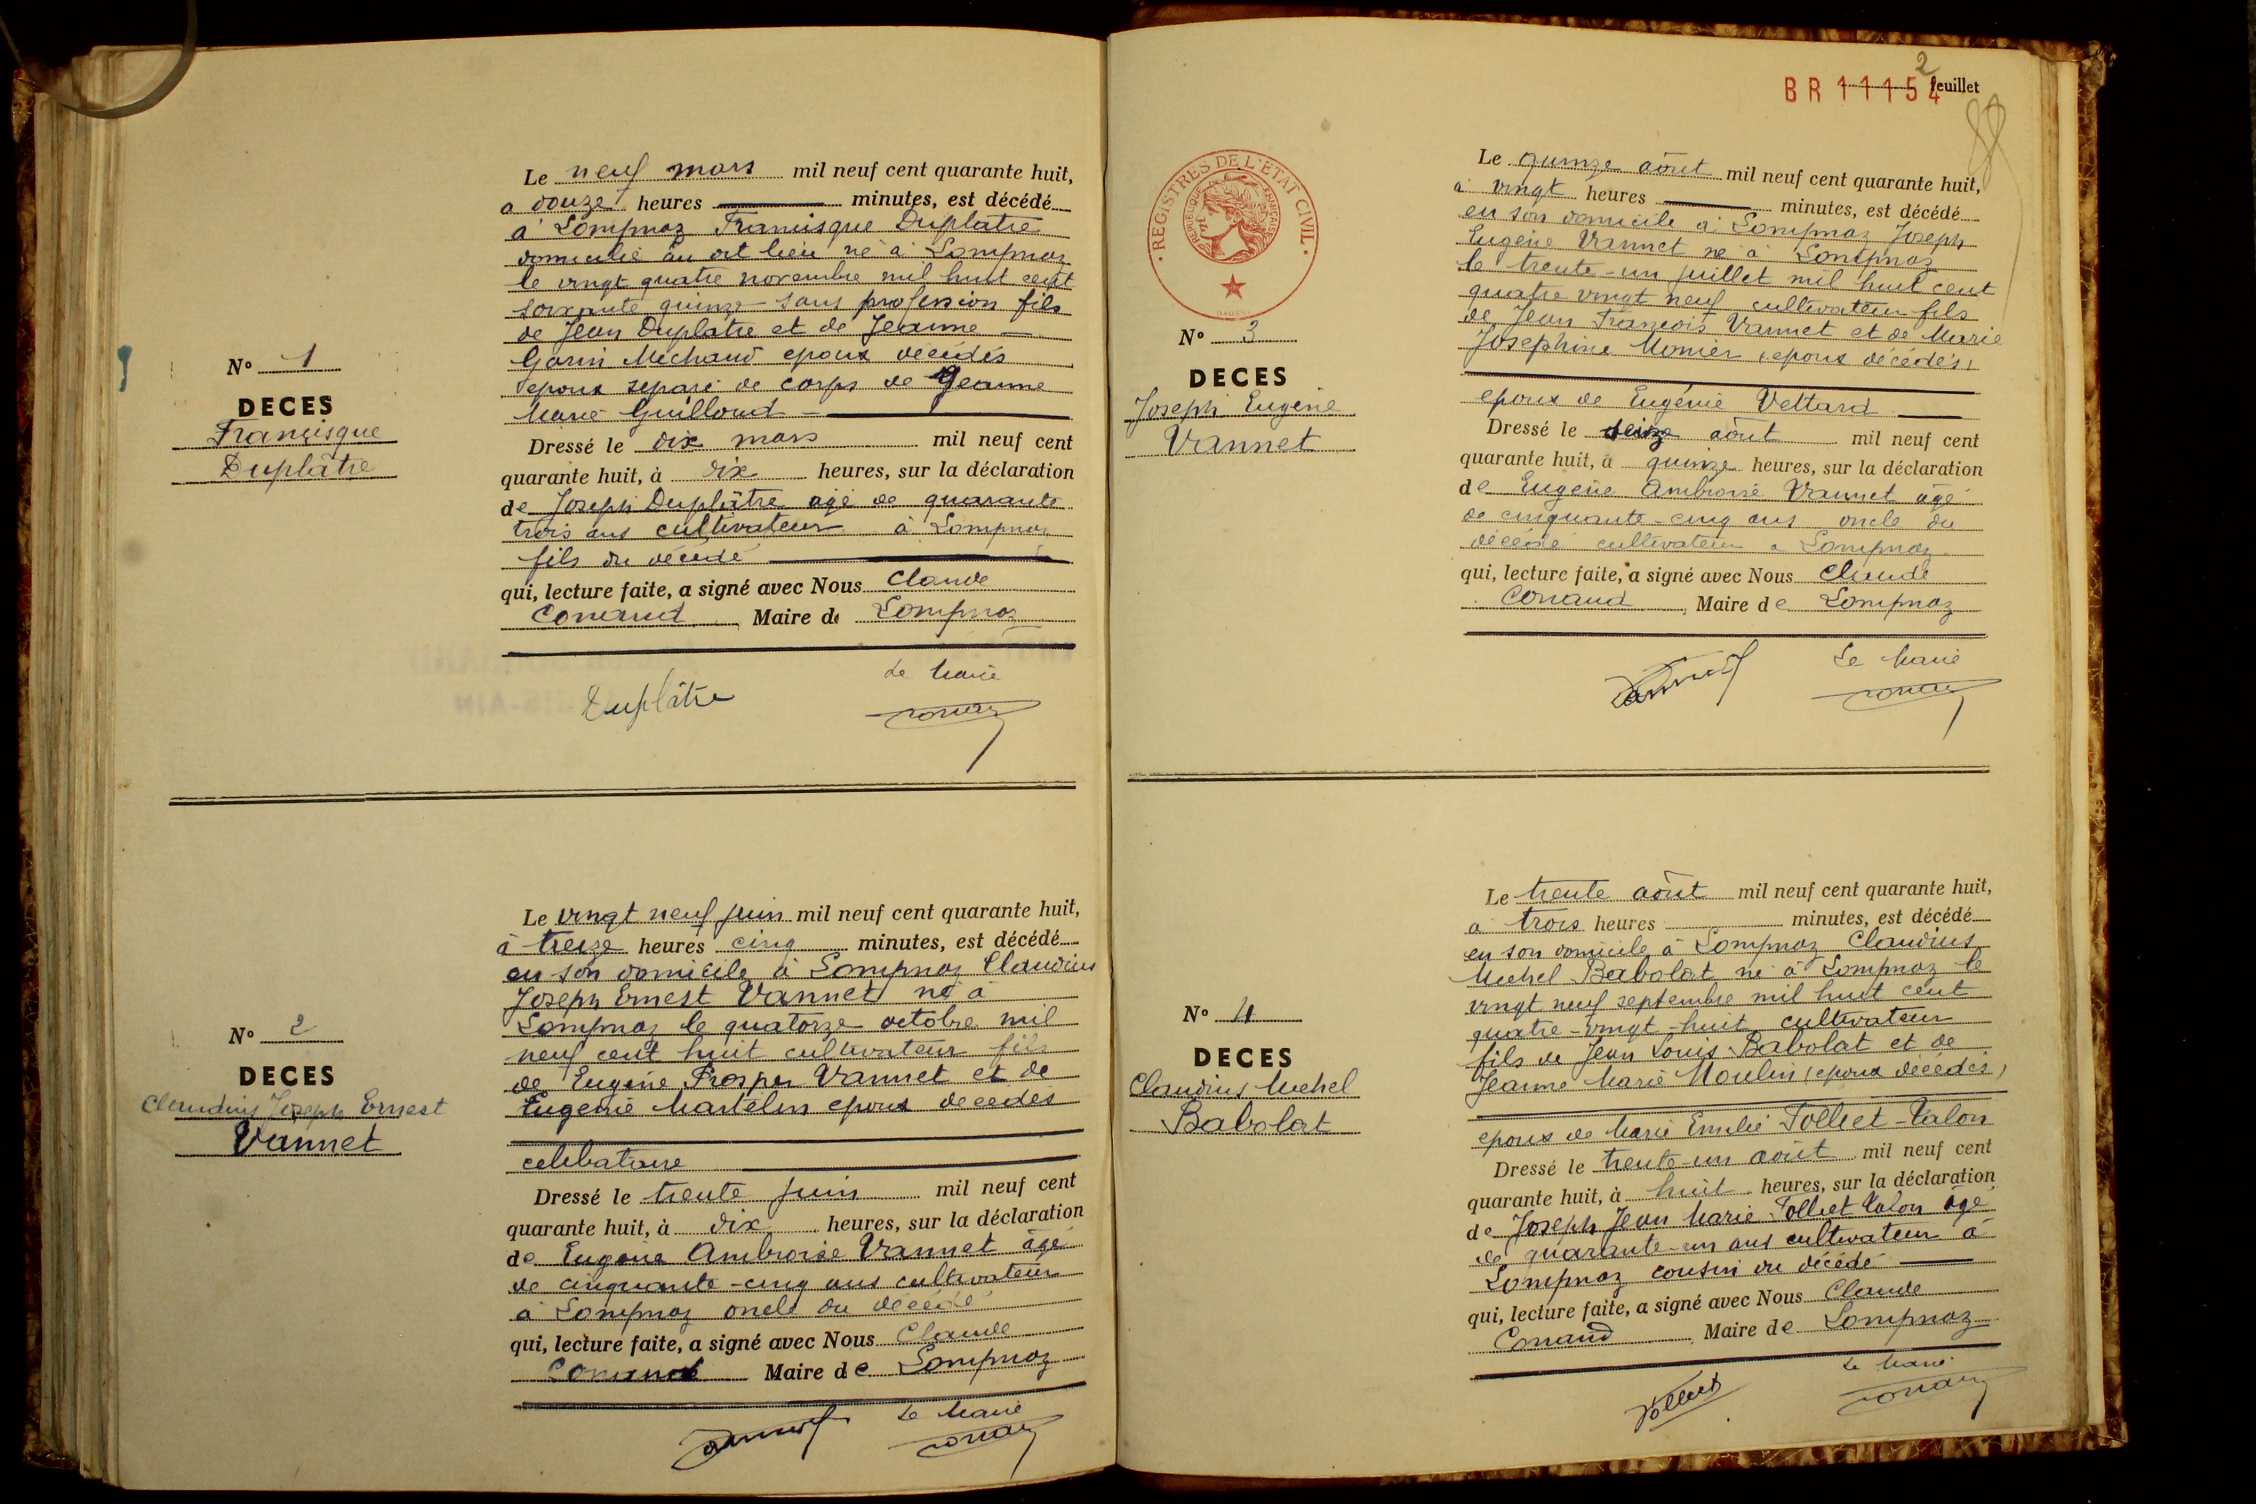 Le neuf mars mil neuf cent quarante huit,
a douze heures minutes, est décédé
à Lompnaz Francisque Duplâtre
domicilié au dit lieu né à Lompnaz
le vingt quatre novembre mil huit cent
soixante quinze sans profession fils
de Jean Duplâtre et de Jeanne
Garin Michaud epoux décédés
epoux séparé de corps de Jeanne
Marie Guilloud
N° 1
DECES
Francisque
Duplâtre
Dressé le dix mars mil neuf cent
quarante huit, à dix heures, sur la déclaration
de Joseph Duplâtre agé de quarante
trois ans cultivateur à Lompnaz
fils du décédé
qui, lecture faite, a signé avec Nous Claude
Conand Maire de Lompnaz
Duplâtre
Le Maire
Le vingt neuf juin mil neuf cent quarante huit,
à treize heures cinq minutes, est décédé
en son domicile à Lompnaz Claudius
Joseph Ernest Vannet né à
Lompnaz le quatorze octobre mil
neuf cent huit cultivateur fils
de Eugène Prosper Vannet et de
Eugénie Martelin epoux décédés
celibataire
N° 2
DECES
Claudius Joseph Ernest
Vannet
Dressé le trente juin mil neuf cent
quarante huit, à dix heures, sur la déclaration
de Eugène Ambroise Vannet âgé
de cinquante-cinq ans cultivateur
à Lompnaz oncle du décédé
qui, lecture faite, a signé avec Nous Claude
Conand Maire de Lompnaz
Vannet
Le Maire
Conand
2
BR 11154 feuillet
88
REGISTRES DE L'ETAT CIVIL
REPUBLIQUE FRANÇAISE
Le quinze août mil neuf cent quarante huit,
à vingt heures minutes, est décédé
en son domicile à Lompnaz Joseph
Eugène Vannet né à Lompnaz
le trente-un juillet mil huit cent
quatre vingt neuf cultivateur fils
de Jean François Vannet et de Marie
Josephine Monier (epoux décédés)
epoux de Eugénie Vettard
N° 3
DECES
Joseph Eugène
Vannet
Dressé le seize août mil neuf cent
quarante huit, à quinze heures, sur la déclaration
de Eugène Ambroise Vannet âgé
de cinquante-cinq ans oncle du
décédé cultivateur à Lompnaz
qui, lecture faite, a signé avec Nous Claude
Conand Maire de Lompnaz
Vannet
Le Maire
Conand
Le trente août mil neuf cent quarante huit,
a trois heures minutes, est décédé
en son domicile à Lompnaz Claudius
Michel Babolat né à Lompnaz le
vingt neuf septembre mil huit cent
quatre-vingt-huit cultivateur
fils de Jean Louis Babolat et de
Jeanne Marie Moulin (epoux décédés)
epoux de Marie Emilie Tolliet-Valon
N° 4
DECES
Claudius Michel
Babolat
Dressé le trente-un août mil neuf cent
quarante huit, à huit heures, sur la déclaration
de Joseph Jean Marie Tolliet Valon âgé
de quarante-un ans cultivateur à
Lompnaz cousin du décédé
qui, lecture faite, a signé avec Nous Claude
Conand Maire de Lompnaz
Tolliet
Le Maire
Conand